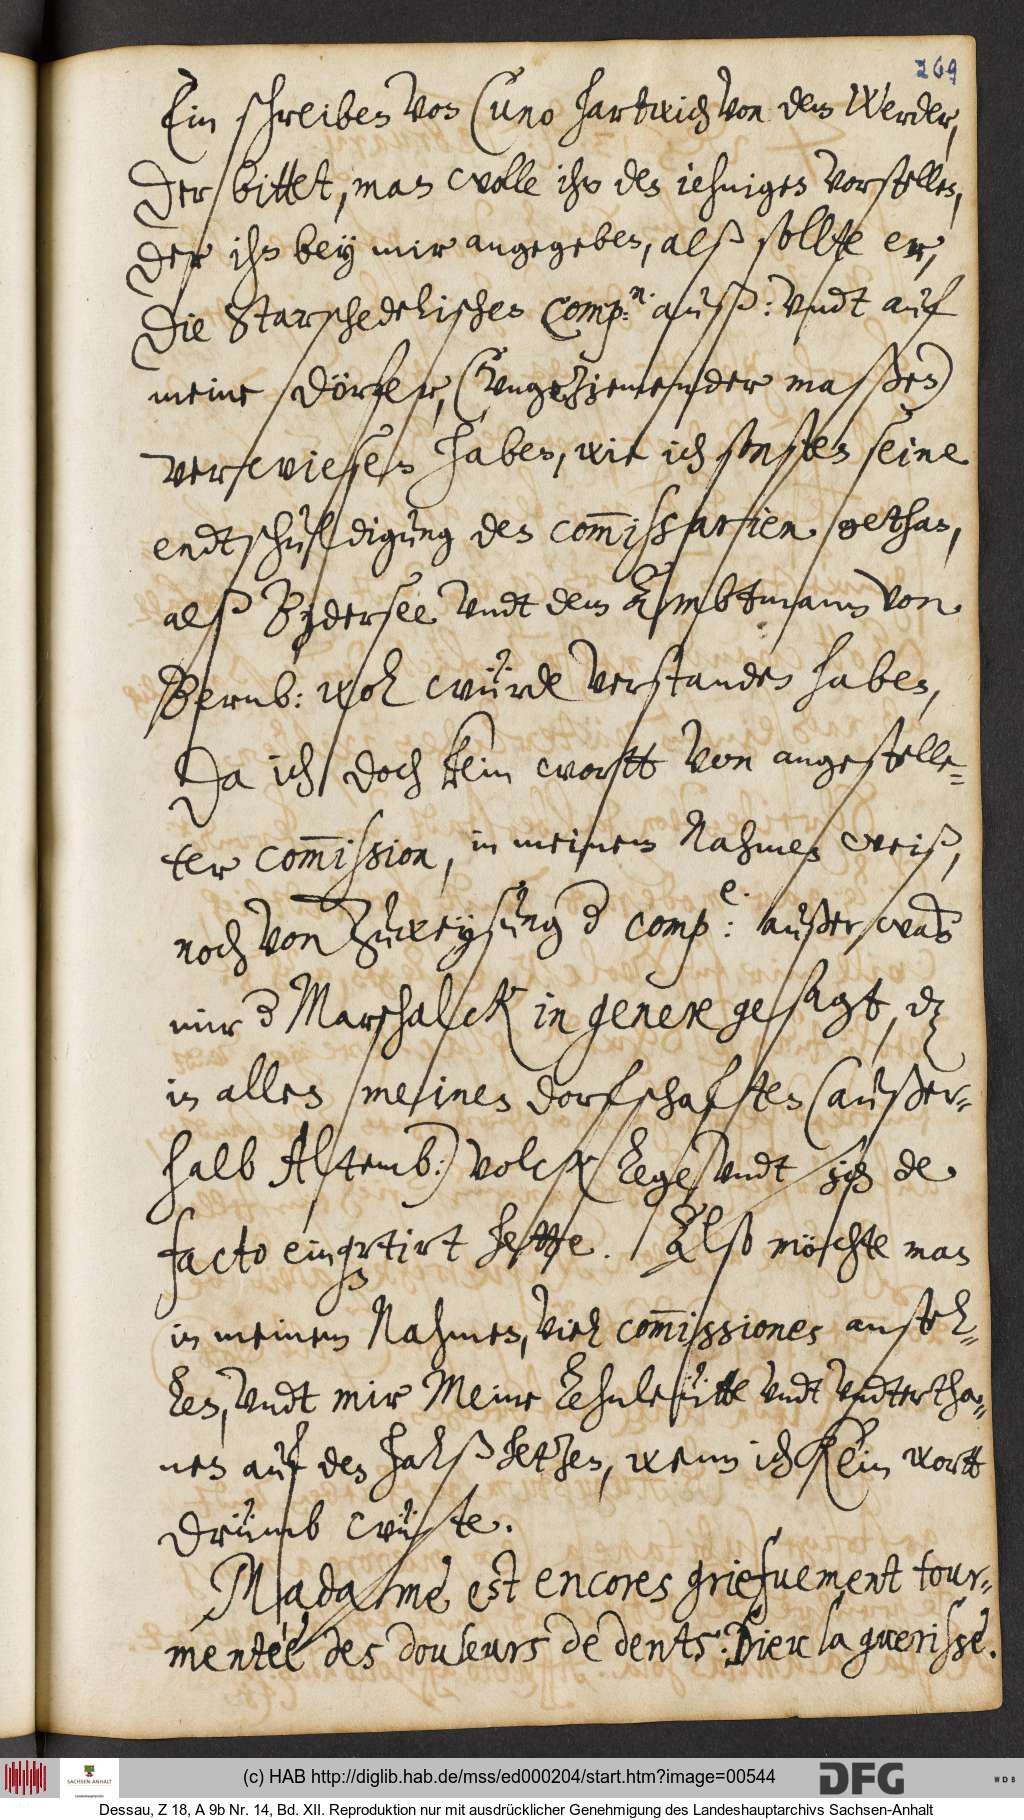 269
Ein schreiben von Cuno Hartwich von dem Werder,
der bittet, man wolle ihn den iehnigen vorstellen,
der ihn bey mir angegeben, alß sollte er,
die Starschedelischen Comp:n. auß: undt auf
meine dörfer, (ungeziemender maßen)
verwiesen haben, wie ich sonsten seine
endtschuldigung den commissarien gethan,
alß Bydersee undt dem Ambtmann von
Bernb: wol würde verstanden haben,
da ich doch kein wortt von angestelle-
ter commission, in meinem Nahmen weiß,
noch von zuweysung d comp:e. außer was
mir d Marschalck in genere gesagt, dz
in allen meinen dorfschaften (außer-
halb Altemb:) volck lege undt sich de
facto eingrtirt hette. Also möchte man
in meinem Nahmen, viel commissiones anstel-
len, undt mir Meine Lehnleütte undt undtertha-
nen auf den halß hetzen, wenn ich kein wortt
drümb wüste.
Madame est encores griefvement tour-
mentèe des douleurs de dents: Dieu la guerisse.
(c) HAB http://diglib.hab.de/mss/ed000204/start.htm?image=00544
SACHSEN-ANHALT
DFG
WDB
Dessau, Z 18, A 9b Nr. 14, Bd. XII. Reproduktion nur mit ausdrücklicher Genehmigung des Landeshauptarchivs Sachsen-Anhalt